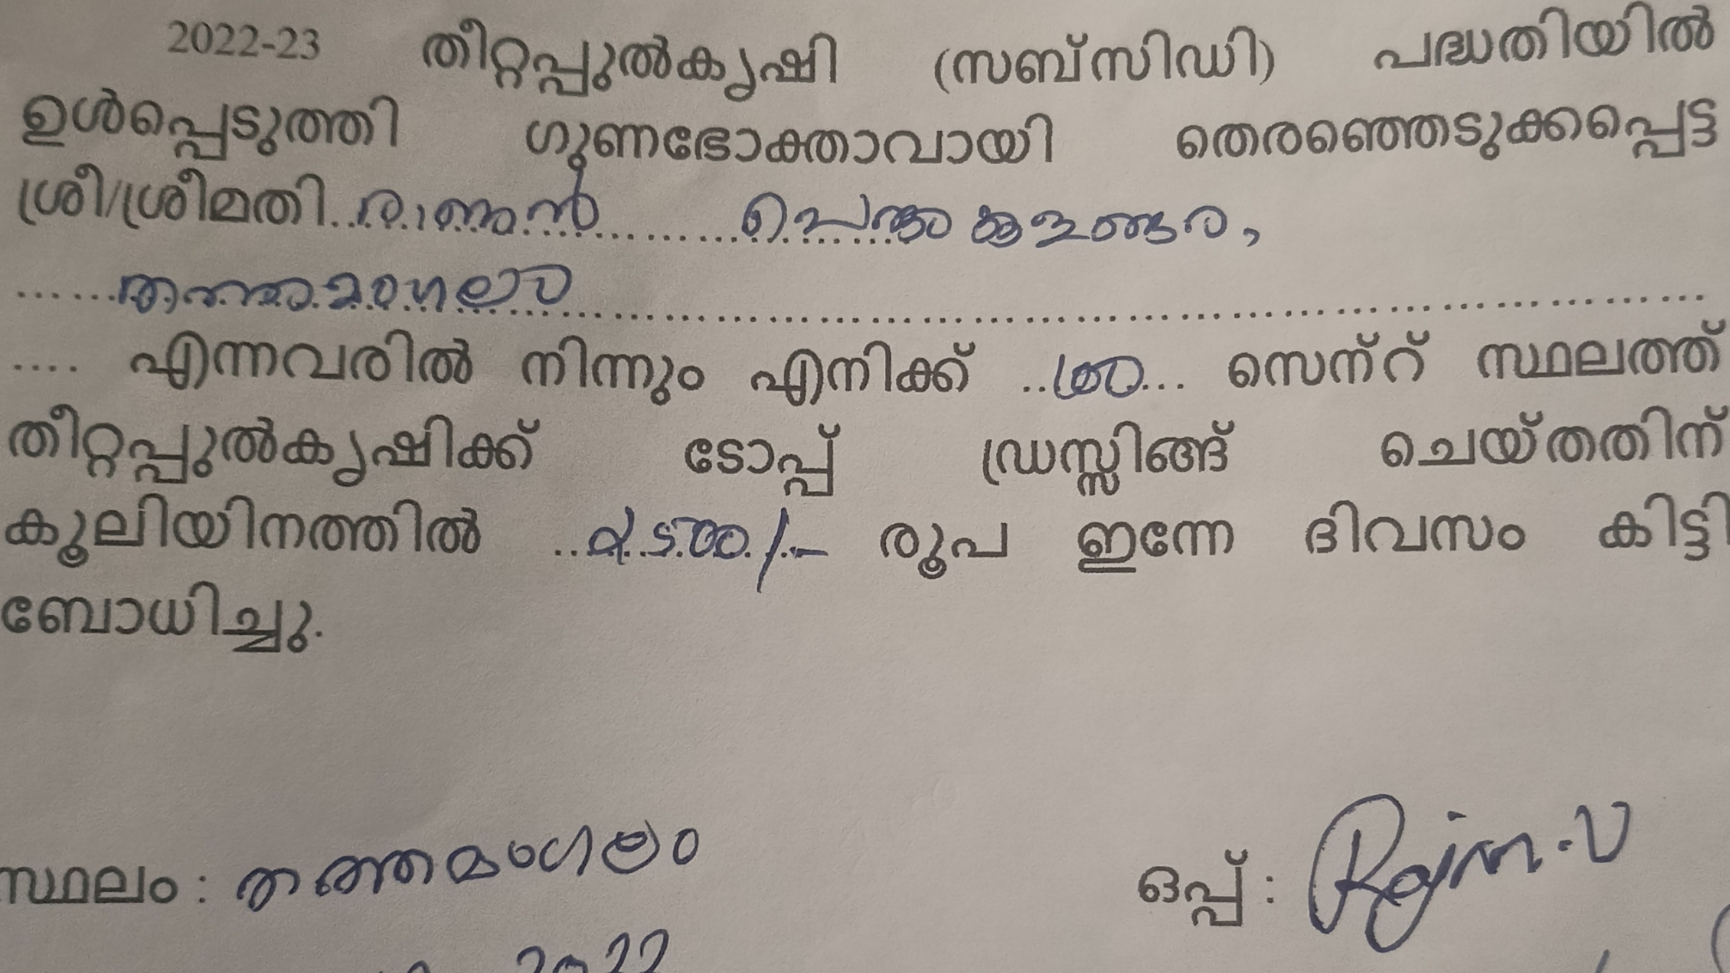 2022-23 തീറ്റപ്പുൽകൃഷി (സബ്സിഡി) പദ്ധതിയിൽ
ഉൾപ്പെടുത്തി ഗുണഭോക്താവായി തെരഞ്ഞെടുക്കപ്പെട്ട
ശ്രീ/ശ്രീമതി..
തത്തമംഗലം
.... എന്നവരിൽ നിന്നും എനിക്ക് ..100... സെന്റ് സ്ഥലത്ത്
തീറ്റപ്പുൽകൃഷിക്ക് ടോപ്പ് ഡ്രസ്സിങ്ങ് ചെയ്തതിന്
കൂലിയിനത്തിൽ രൂപ ഇന്നേ ദിവസം കിട്ടി
ബോധിച്ചു.
സ്ഥലം : തത്തമംഗലം
ഒപ്പ് :
2022